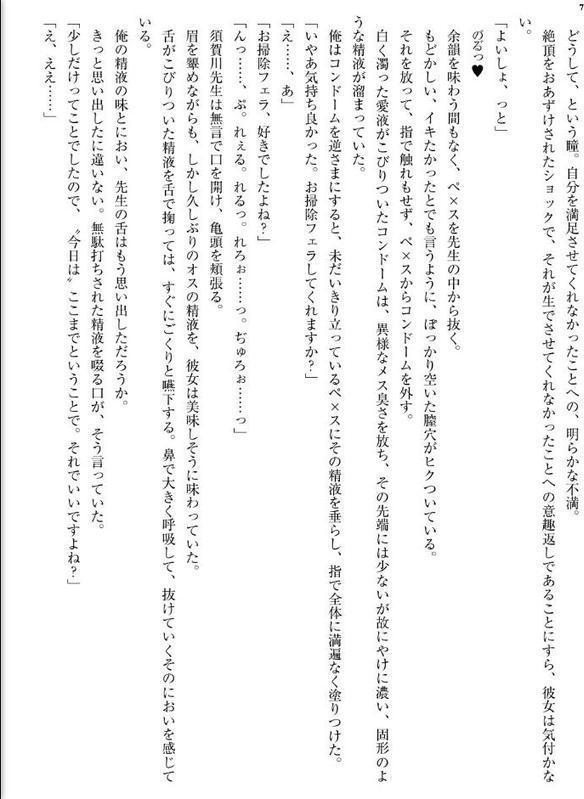 7
どうして、という瞳。自分を満足させてくれなかったことへの、明らかな不満。
絶頂をおあずけされたショックで、それが生でさせてくれなかったことへの意趣返しであることにすら、彼女は気付かな
い。
「よいしょ、っと」
のるっ♥
余韻を味わう間もなく、ペ×スを先生の中から抜く。
もどかしい、イキたかったとでも言うように、ぽっかり空いた膣穴がヒクついている。
それを放って、指で触れもせず、ペ×スからコンドームを外す。
白く濁った愛液がこびりついたコンドームは、異様なメス臭さを放ち、その先端には少ないが故にやけに濃い、固形のよ
うな精液が溜まっていた。
俺はコンドームを逆さまにすると、未だいきり立っているペ×スにその精液を垂らし、指で全体に満遍なく塗りつけた。
「いやあ気持ち良かった。お掃除フェラしてくれますか？」
「え……、あ」
「お掃除フェラ、好きでしたよね？」
「んっ……、ぷ。れぇる。れるっ。れろぉ……っ。ぢゅろぉ……っ」
須賀川先生は無言で口を開け、亀頭を頬張る。
眉を顰めながらも、しかし久しぶりのオスの精液を、彼女は美味しそうに味わっていた。
舌がこびりついた精液を舌で掬っては、すぐにごくりと嚥下する。鼻で大きく呼吸して、抜けていくそのにおいを感じて
いる。
俺の精液の味とにおい、先生の舌はもう思い出しただろうか。
きっと思い出したに違いない。無駄打ちされた精液を啜る口が、そう言っていた。
「少しだけってことでしたので、〝今日は〟ここまでということで。それでいいですよね？」
「え、ええ……」